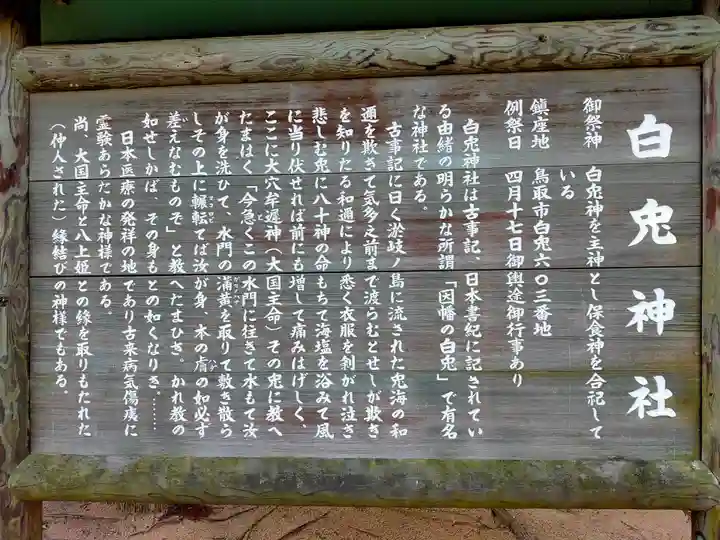 白兎神社
御祭神　白兎神を主神とし保食神を合祀して
いる
鎮座地　鳥取市白兎六〇三番地
例祭日　四月十七日御輿途御行事あり
白兎神社は古事記、日本書紀に記されてい
る由緒の明らかな所謂「因幡の白兎」で有名
な神社である。
古事記に曰く淤岐ノ島に流された兎海の和
邇を欺きて気多之前まで渡らむとせしが欺き
を知りたる和邇により悉く衣服を剥がれ泣き
悲しむ兎に八十神の命もちて海塩を浴みて風
に当り伏せれば前にも増して痛みはげしく、
ここに大穴牟遅神（大国主命）その兎に教へ
たまはく「今急くこの水門に往きて水もて汝
が身を洗ひて、水門の蒲黄を取りて敷き散ら
しその上に輾転てば汝が身、本の膚の如必ず
差えなむものぞ」と教へたまひき、かれ教の
如せしかば、その身もとの如くなりき、……
日本医療の発祥の地であり古来病気傷痍に
霊験あらたかな神様である。
尚、大国主命と八上姫との縁を取りもたれた
（仲人された）縁結びの神様でもある。